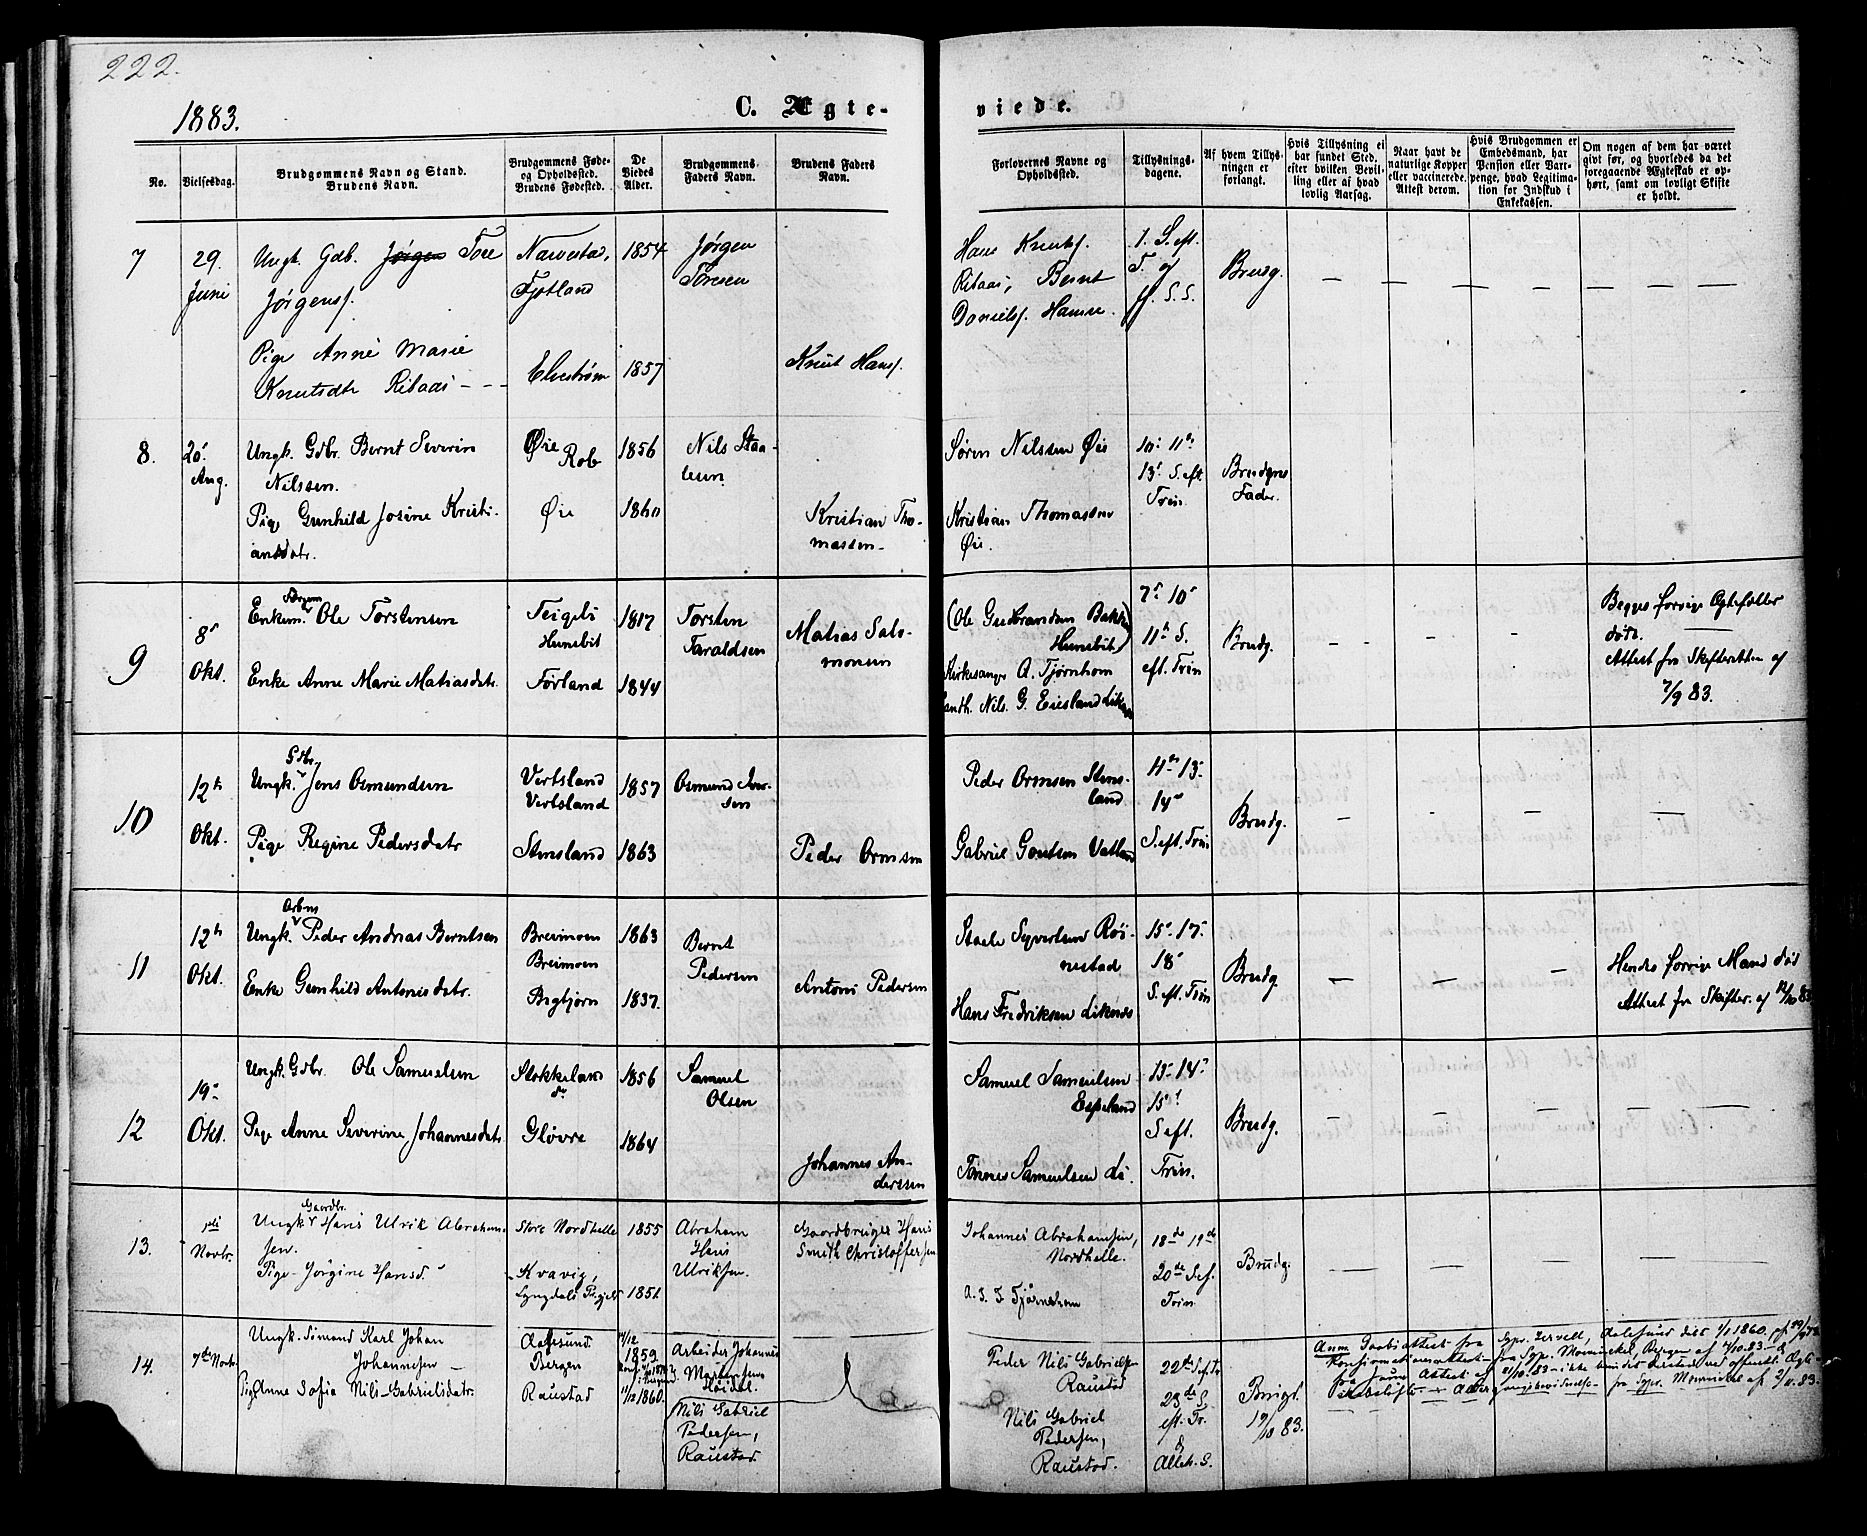 222.
1883.
C. Ægte-
viede.
No.
Vielsesdag.
Brudgommens Navn og Stand.
Brudens Navn.
Brudgommens Føde-
og Opholdssted.
Brudens Fødested.
De
Viedes
Alder.
Brudgommens
Faders Navn.
Brudens Faders
Navn.
Forlovernes Navne og
Opholdssted.
Tillysnings-
dagene.
Af hvem Tillys-
ningen er
forlangt.
Hvis Tillysning ei
har fundet Sted,
efter hvilken Bevil-
ling eller af hvad
lovlig Aarsag.
Naar havt de
naturlige Kopper
eller vaccinerede.
Attest derom.
Hvis Brudgommen er
Embedsmand, har
Pension eller Vart-
penge, hvad Legitima-
tion for Indskud i
Enkekassen.
Om nogen af dem har været
givt før, og hvorledes da det
foregaaende Ægteskab er op-
hørt, samt om lovligt Skifte
er holdt.
7
29.
Juni
Ungk. Gdb. Jørgen Tore
Jørgens.
Pige Anne Marie
Knutsdtr
Fjotland
Elvestrøm
1854
1857
Jørgen
Toresen
Knut Hans.
Hans Knuts.
Bernt
Daniels.
1. S. eft.
T. og
ff. S. S.
Brudg.
8.
20
Aug.
Ungk. Gdbr. Bernt Severin
Nilssen.
Pige Gunhild Josine Kristi-
ansdatr.
Øie
Rob
Øie
1856
1860
Nils
Kristian Tho-
massen
Søren Nilssen Øie
Kristian Thomassen
Øie.
10 11
13 S. eft.
Trin.
Brudgms
Fader.
9
8
Okt.
Enkem. Ole Torstensen
Enke Anne Marie Matiasdtr.
Hunsbit
Førland
1817
1844
Torsten
Taraldsen
Matias Salo-
monsen
(Ole Gudbrandsen Bakke
Hunsbit)
Kirkesanger A. Tjørnhom
Nils G. Eiesland
7 10
11 S.
eft. Trin
Brudg.
Begges forrige Ægtefæller
døde.
Attest fr Skifteretten af
7/9 83.
10
12
Okt.
Gdbr.
Ungk. Jens Osmundsen
Pige Regine Pedersdatr
Virtsland
Virtsland
Stensland
1857
1863
Osmund
Peder Ormsen
Peder Ormsen Stens-
land
Gabriel
11 13
14
S. eft. Trin
Brudg.
11
12
Okt.
Ungk. Peder Andreas Berntsen
Enke Gunhild Antonisdatr.
Breimoen
Breimoen
1863
1837.
Bernt
Pedersen
Antoni Pedersen
Staale Syvertsen Røi-
nestad
Hans Fredriksen Liknes
15 17
18
S. eft. Trin
Brudg.
Hendes forrige Mand død
Attest fr Skifter. af 12/10 83
12
19
Okt.
Ungk. Gdbr. Ole Samuelsen
Pige Anne Severine Johannesdatr.
Stokkeland
do
Gløvre
1856
1864
Samuel
Olsen
Johannes An-
derssen
Samuel Samuelsen
Espeland
Tønnes Samuelsen
13 14
15
S eft.
Trin.
Brudg.
13.
1ste
Novbr.
Gaardbr.
Ungk Hans Ulrik Abraham-
sen.
Pige Jørgine Hansd.
Store Nordhelle
Kvavig,
Lyngdals Pgjeld
1855
1851
Abraham
Hans
Ulriksen.
Gaardbruger Hans
Smith Christoffersen
Johannes Abrahamsen,
Nordhelle.
18de 19de
20de S. ef.
Trin.
Brudg.
14.
7de Novbr.
Ungk. Simond Karl Johan
Johannesen
Pige Anne Sofia Nils-Gabrielsdatr.
Aalesund.
Bergen
Raustad
1859
1860.
Arbeider Johannes
Nils Gabriel
Pedersen,
Raustad.
Peder Nils Gabrielsen
Raustad
Nils Gabriel
Pedersen,
Raustad.
22de
23de S.
eft. Tr.
&
Alleh. S.
19/10 83.
Anm. Daabsattest fra
Konfirmationsattest